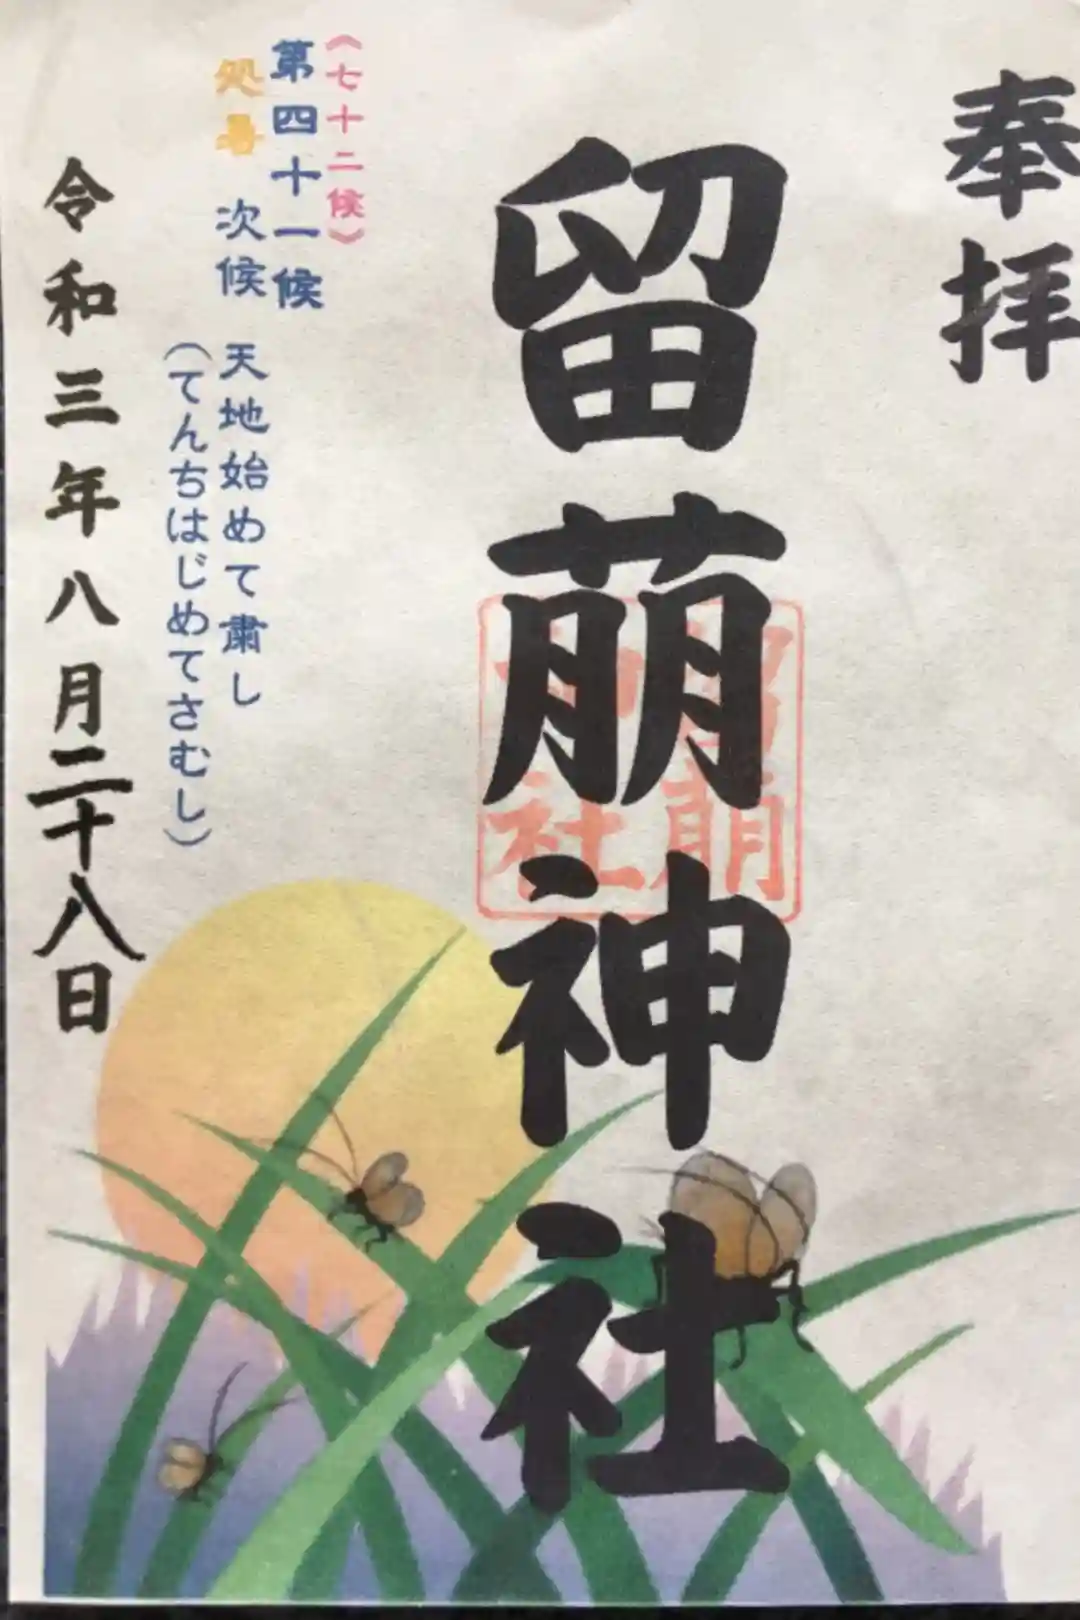 奉拝
留萌神社
留萌
神社
《七十二候》
第四十一候
処暑 次候 天地始めて粛し
(てんちはじめてさむし)
令和三年八月二十八日